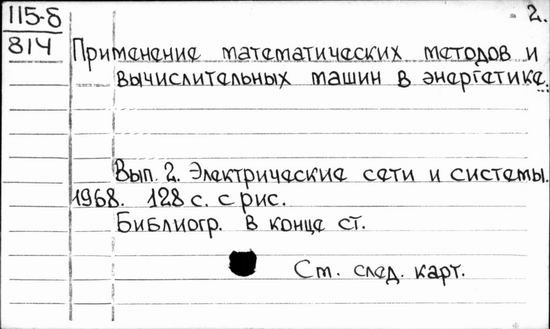 115-8
2.
814
Применение математических методов и
вычислительных машин в энергетике.
Вып. 2. Электрические сети и системы.
1968. 128 с. с рис.
Библиогр. в конце ст.
См. след. карт.